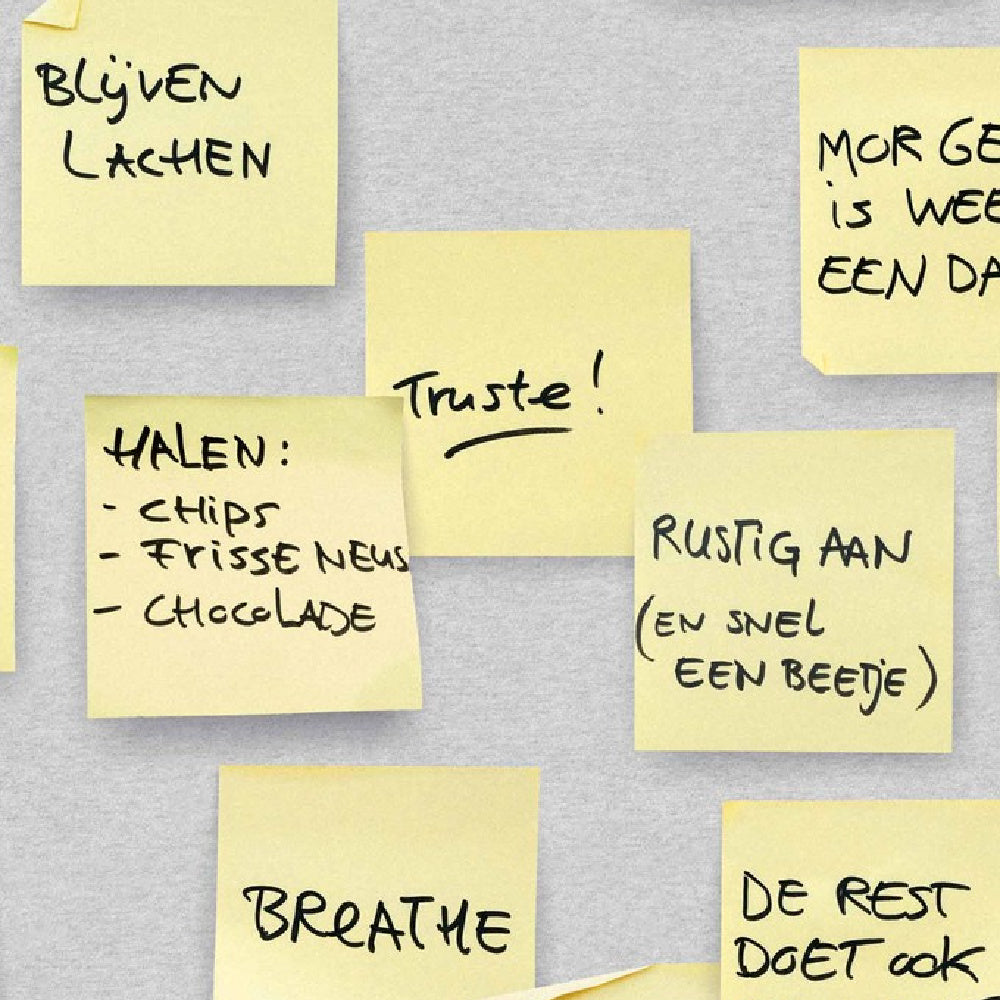 BLijVEN
LACHEN
MORGE
is WEE
EEN DA
Truste!
HALEN:
- CHIPS
- FRISSE NEUS
- CHOCOLADE
RUSTIG AAN
(EN SNEL
EEN BEETJE)
BREATHE
DE REST
DOET OOK